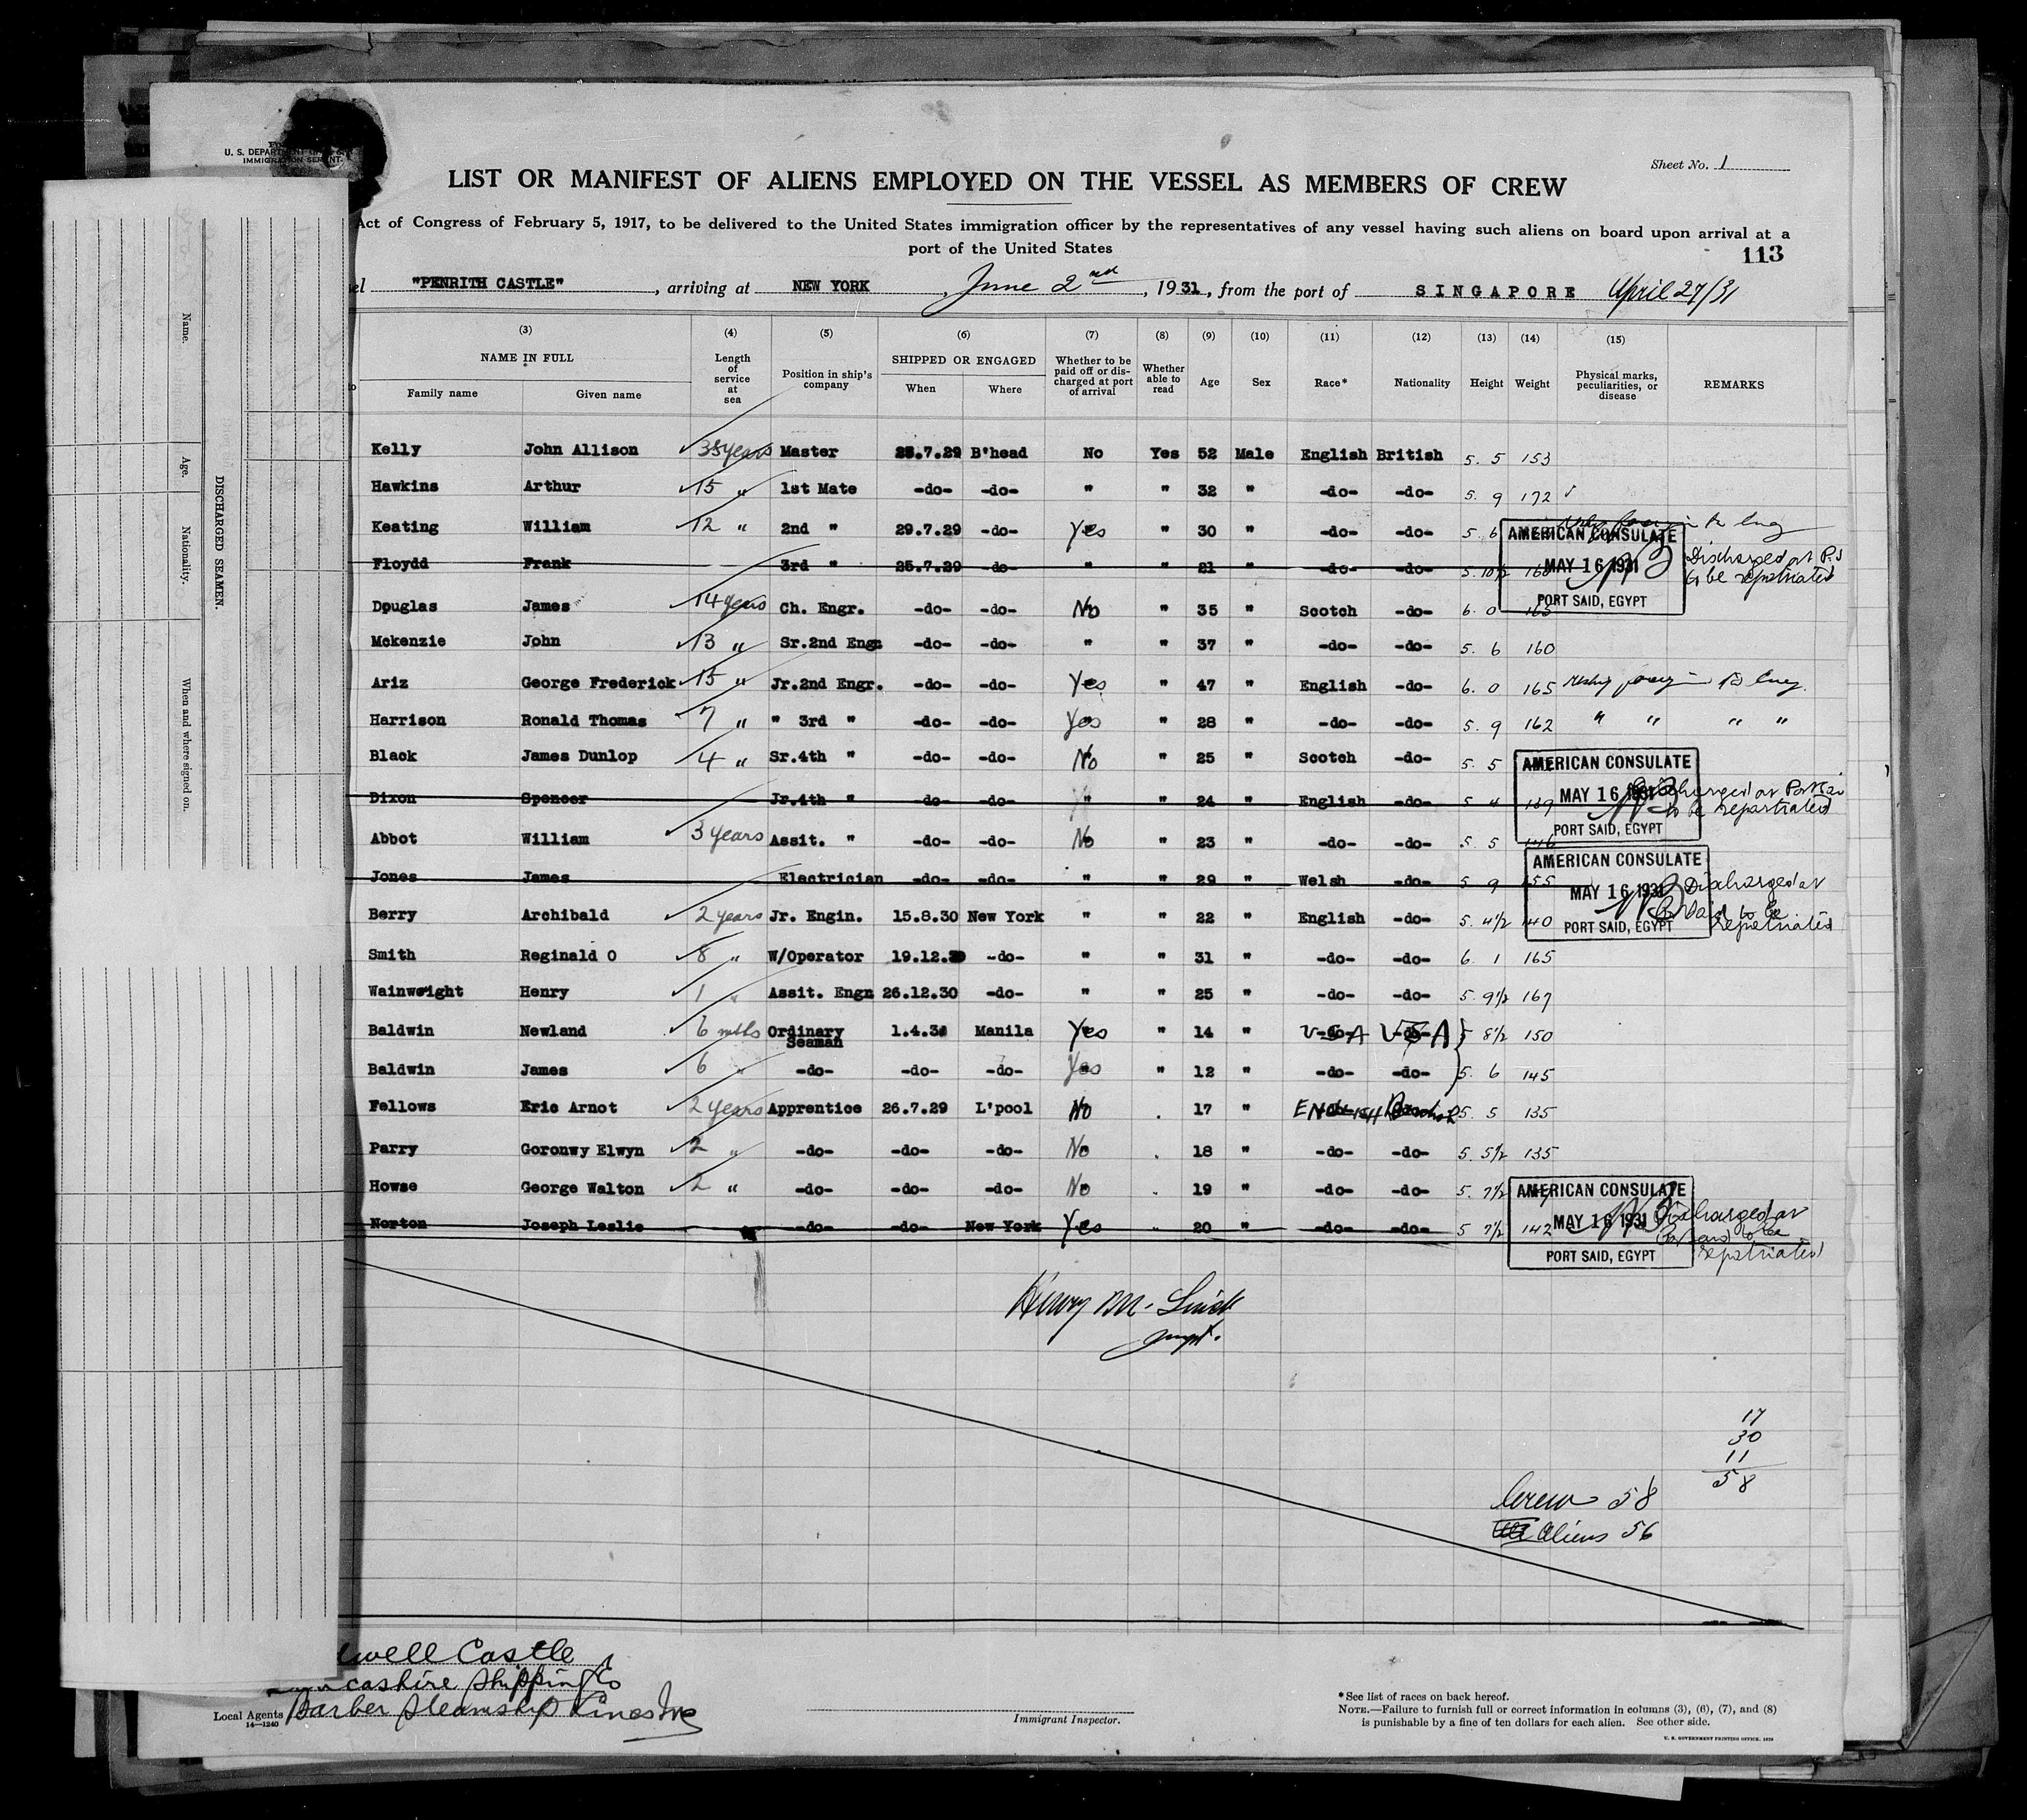 Sheet No. 1
U. S. DEPARTMENT
IMMIGRATION
LIST OR MANIFEST OF ALIENS EMPLOYED ON THE VESSEL AS MEMBERS OF CREW
Act of Congress of February 5, 1917, to be delivered to the United States immigration officer by the representatives of any vessel having such aliens on board upon arrival at a
port of the United States
113
"PENRITH CASTLE" , arriving at NEW YORK , June 2nd , 1931, from the port of SINGAPORE April 27/31
(3) (4) (5) (6) (7) (8) (9) (10) (11) (12) (13) (14) (15)
NAME IN FULL Length of service at sea Position in ship's company SHIPPED OR ENGAGED Whether to be paid off or discharged at port of arrival Whether able to read Age Sex Race* Nationality Height Weight Physical marks, peculiarities, or disease REMARKS
Family name Given name When Where
Kelly John Allison 35 years Master 25.7.29 B'head No Yes 52 Male English British 5. 5 153
Hawkins Arthur 15 " 1st Mate -do- -do- " " 32 " -do- -do- 5. 9 172
Keating William 12 " 2nd " 29.7.29 -do- Yes " 30 " -do- -do- 5 6
Floydd Frank 3rd " 25.7.29 -do- " " 21 " -do- -do- 5. 10½ Discharged at P.S to be repatriated
AMERICAN CONSULATE
MAY 16 1931
PORT SAID, EGYPT
Douglas James 14 years Ch. Engr. -do- -do- No " 35 " Scotch -do- 6. 0 165
Mckenzie John 13 " Sr.2nd Engr -do- -do- " " 37 " -do- -do- 5. 6 160
Ariz George Frederick 15 " Jr.2nd Engr. -do- -do- Yes " 47 " English -do- 6. 0 165
Harrison Ronald Thomas 7 " " 3rd " -do- -do- Yes " 28 " -do- -do- 5. 9 162 " " " "
Black James Dunlop 4 " Sr.4th " -do- -do- No " 25 " Scotch -do- 5. 5
Dixon Spencer Jr.4th " -do- -do- " " 24 " English -do- 5 4 139 Discharged at Port Sai to be repartriated
AMERICAN CONSULATE
MAY 16 1931
PORT SAID, EGYPT
Abbot William 3 years Assit. " -do- -do- No " 23 " -do- -do- 5. 5 146
Jones James Electrician -do- -do- " " 29 " Welsh -do- 5 9 155 Discharged at P. Said to be repatriated
AMERICAN CONSULATE
MAY 16 1931
PORT SAID, EGYPT
Berry Archibald 2 years Jr. Engin. 15.8.30 New York " " 22 " English -do- 5. 4½ 140
Smith Reginald O 8 " W/Operator 19.12.30 -do- " " 31 " -do- -do- 6. 1 165
Wainwright Henry 1 " Assit. Engn 26.12.30 -do- " " 25 " -do- -do- 5. 9½ 167
Baldwin Newland 6 mths Ordinary Seaman 1.4.31 Manila Yes " 14 " USA USA 5 8½ 150
Baldwin James 6 " -do- -do- -do- Yes " 12 " -do- -do- 5. 6 145
Fellows Eric Arnot 2 years Apprentice 26.7.29 L'pool No . 17 " ENGLISH British 5. 5 135
Parry Goronwy Elwyn 2 " -do- -do- -do- No . 18 " -do- -do- 5. 5½ 135
Howse George Walton 2 " -do- -do- -do- No " 19 " -do- -do- 5. 7½
Norton Joseph Leslie -do- -do- New York Yes " 20 " -do- -do- 5 7½ 142 Discharged at Port Said to be repatriated
AMERICAN CONSULATE
MAY 16 1931
PORT SAID, EGYPT
17
30
11
58
Crew 58
Aliens 56
DISCHARGED SEAMEN.
Name. Age. Nationality. When and where signed on.
well Castle
cashire Shipping Co
Local Agents Barber Steamship Lines Inc
14—1240
Immigrant Inspector.
*See list of races on back hereof.
NOTE.—Failure to furnish full or correct information in columns (3), (6), (7), and (8)
is punishable by a fine of ten dollars for each alien. See other side.
U. S. GOVERNMENT PRINTING OFFICE: 1929